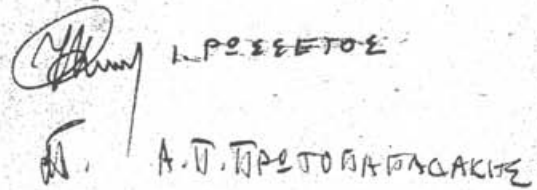 Ι. ΡΩΣΣΕΤΟΣ
Π. Α. Π. ΠΡΩΤΟΠΑΠΑΔΑΚΗΣ